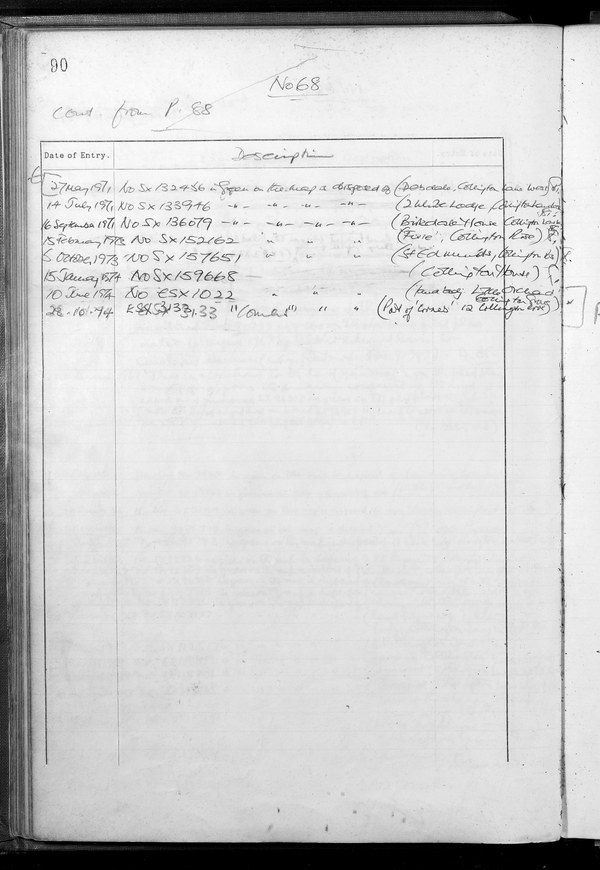 90
No 68
Cont. from P. 88
Date of Entry. Description
27 May 1971 No Sx 132456 green on the map is disposed of (Collington Lane West)
14 July 1971 No Sx 133946 -"- -"- -"- -"- (2 White Lodge
16 September 1971 No Sx 136079 -"- -"- -"- -"- ( House Collington Lane
15 February 1973 No Sx 152162 " " " ( Collington Rise)
5 October, 1973 No Sx 157651 " " " (St Edmunds, Collington
15 January 1974 No Sx 159668 — (Collington House)
10 June 1974 No ESX 1022 " " " (Land adj Little Orchard
Collington
28.10.74 ESX 3133 3133 " " " (Part of 12 Collington